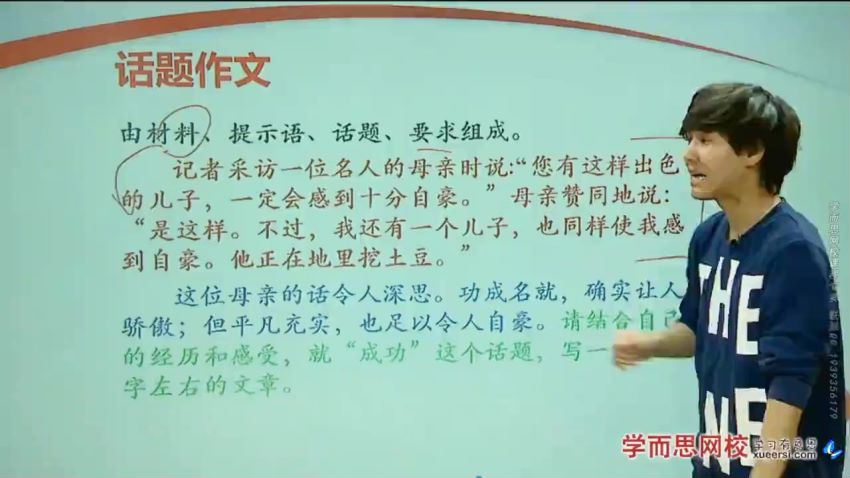 话题作文
由材料、提示语、话题、要求组成。
记者采访一位名人的母亲时说：“您有这样出色
的儿子，一定会感到十分自豪。”母亲赞同地说：
“是这样。不过，我还有一个儿子，也同样使我感
到自豪。他正在地里挖土豆。”
这位母亲的话令人深思。功成名就，确实让人
骄傲；但平凡充实，也足以令人自豪。请结合自己
的经历和感受，就“成功”这个话题，写一
字左右的文章。
THE
NE
学而思网校
xueersi.com
1939356179